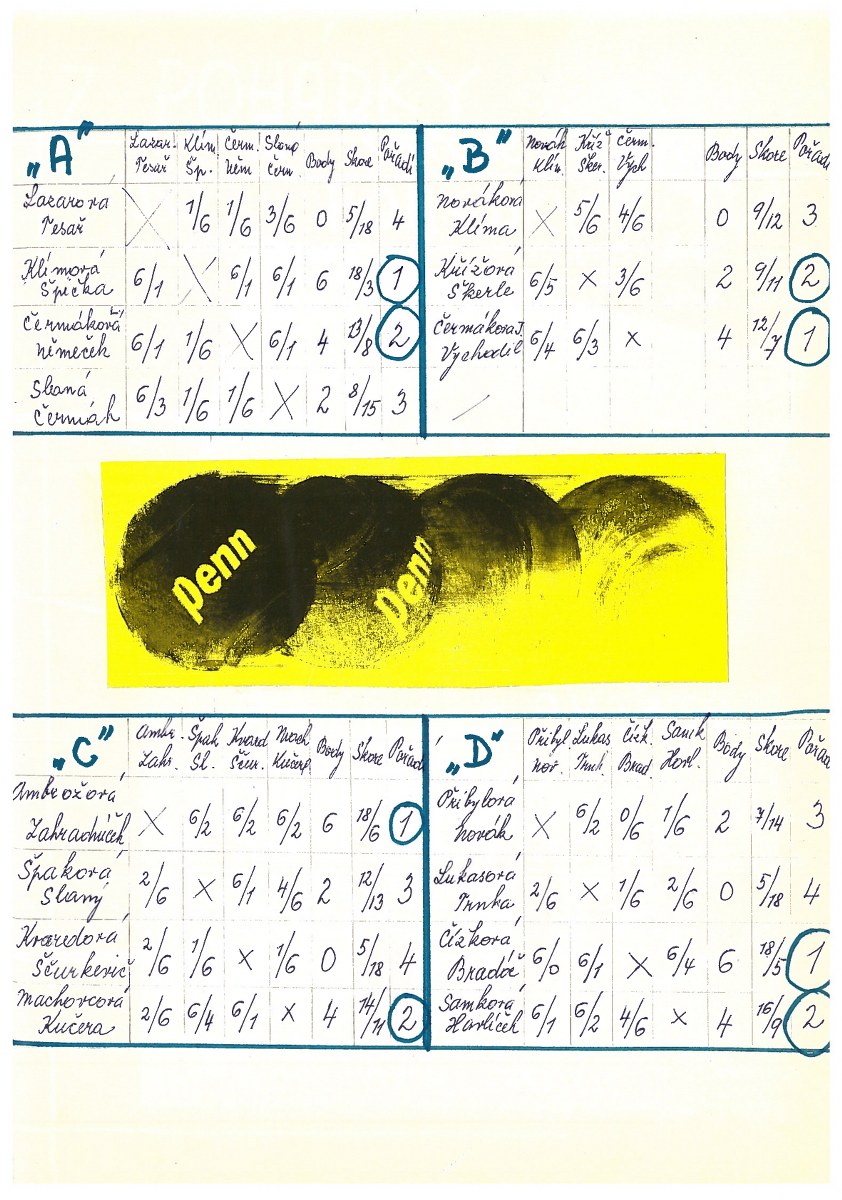 POHÁDKY
„A" Lazar. Klím. Čerm. Slaná Body Skore Pořadí
Tesař Šp. Něm Čern.
Lazarová 1/6 1/6 3/6 0 5/18 4
Tesař
Klímová 6/1 6/1 6/1 6 18/3 1
Špička
Čermáková 6/1 1/6 6/1 4 13/8 2
Němeček
Slaná 6/3 1/6 1/6 2 8/15 3
Čermák
„B" Novák Kříž Čerm. Body Skore Pořadí
Klím. Sker. Vych
Nováková X 5/6 4/6 0 9/12 3
Klíma
Křížová 6/5 x 3/6 2 9/11 2
Skerle
Čermáková J. 6/4 6/3 x 4 12/7 1
Vychodil
penn
penn
„C" Ambr. Špak Kvard Mach Body Skore Pořadí
Zahr. Sl. Ščur. Kučera
Ambrožová
Zahradníček X 6/2 6/2 6/2 6 18/6 1
Špaková 2/6 X 6/1 4/6 2 12/13 3
Slaný
Kvardová 2/6 1/6 x 1/6 0 5/18 4
Ščurkevič
Machovcová 2/6 6/4 6/1 x 4 14/11 2
Kučera
„D" Přibyl Lukas Čížk. Samk Body Skore Pořadí
Nov. Trnk. Brad. Havl.
Přibylová X 6/2 0/6 1/6 2 7/14 3
Novák
Lukasová 2/6 x 1/6 2/6 0 5/18 4
Trnka
Čížková 6/0 6/1 X 6/4 6 18/5 1
Bradáč
Samková 6/1 6/2 4/6 x 4 16/9 2
Havlíček